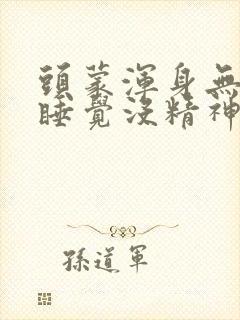 頭蒙渾身無
睡覺沒精神
孫道軍